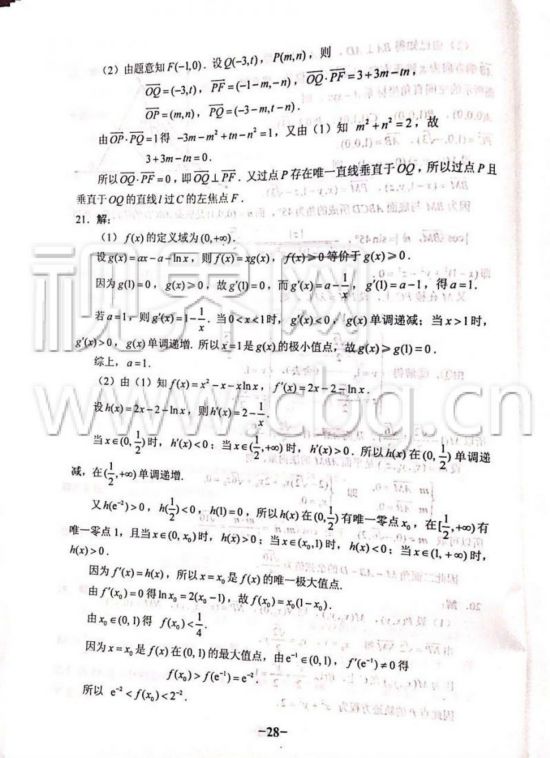 (2) 由题意知 F(-1,0). 设 Q(-3,t), P(m,n), 则
OQ=(-3,t), PF=(-1-m,-n), OQ·PF=3+3m-tn,
OP=(m,n), PQ=(-3-m,t-n).
由 OP·PQ=1 得 -3m-m²+tn-n²=1, 又由 (1) 知 m²+n²=2, 故
3+3m-tn=0.
所以 OQ·PF=0, 即 OQ⊥PF. 又过点 P 存在唯一直线垂直于 OQ, 所以过点 P 且
垂直于 OQ 的直线 l 过 C 的左焦点 F.
21. 解:
(1) f(x) 的定义域为 (0,+∞).
设 g(x)=ax-a-ln x, 则 f(x)=xg(x), f(x)≥0 等价于 g(x)≥0.
因为 g(1)=0, g(x)≥0, 故 g'(1)=0, 而 g'(x)=a-1/x, g'(1)=a-1, 得 a=1.
若 a=1, 则 g'(x)=1-1/x. 当 0<x<1 时, g'(x)<0, g(x) 单调递减; 当 x>1 时,
g'(x)>0, g(x) 单调递增. 所以 x=1 是 g(x) 的极小值点, 故 g(x)≥g(1)=0.
综上, a=1.
(2) 由 (1) 知 f(x)=x²-x-xln x, f'(x)=2x-2-ln x.
设 h(x)=2x-2-ln x, 则 h'(x)=2-1/x.
当 x∈(0,1/2) 时, h'(x)<0; 当 x∈(1/2,+∞) 时, h'(x)>0. 所以 h(x) 在 (0,1/2) 单调递
减, 在 (1/2,+∞) 单调递增.
又 h(e⁻²)>0, h(1/2)<0, h(1)=0, 所以 h(x) 在 (0,1/2) 有唯一零点 x₀, 在 [1/2,+∞) 有
唯一零点 1, 且当 x∈(0,x₀) 时, h(x)>0; 当 x∈(x₀,1) 时, h(x)<0; 当 x∈(1,+∞) 时,
h(x)>0.
因为 f'(x)=h(x), 所以 x=x₀ 是 f(x) 的唯一极大值点.
由 f'(x₀)=0 得 ln x₀=2(x₀-1), 故 f(x₀)=x₀(1-x₀).
由 x₀∈(0,1) 得 f(x₀)<1/4.
因为 x=x₀ 是 f(x) 在 (0,1) 的最大值点, 由 e⁻¹∈(0,1), f'(e⁻¹)≠0 得
f(x₀)>f(e⁻¹)=e⁻².
所以 e⁻²<f(x₀)<2⁻².
-28-
视界网
www.cbg.cn